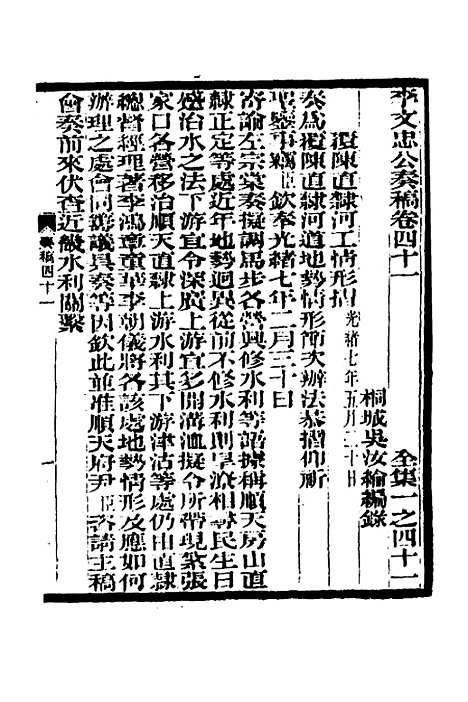 李文忠公奏稿卷四十一 全集一之四十一
桐城吳汝綸編錄
覆陳直隸河工情形摺 光緒七年五月二十日
奏為覆陳直隸河道地勢情形節次辦法恭摺仰祈
聖鑒事竊臣欽奉光緒七年二月三十日
寄諭左宗棠奏擬調馬步各營興修水利等語據稱順天房山直
隸正定等處近年地勢迥異從前不修水利則旱澇相尋民生日
蹙治水之法下游宜令深廣上游宜多開溝洫擬令所帶現紮張
家口各營移治順天直隸上游水利其下游津沽等處仍由直隸
總督經理著李鴻章童華李朝儀將各該處地勢情形及應如何
辦理之處會同籌議具奏等因欽此並准順天府尹臣咨請主稿
會奏前來伏查近畿水利關繫
奏稿四十一 一